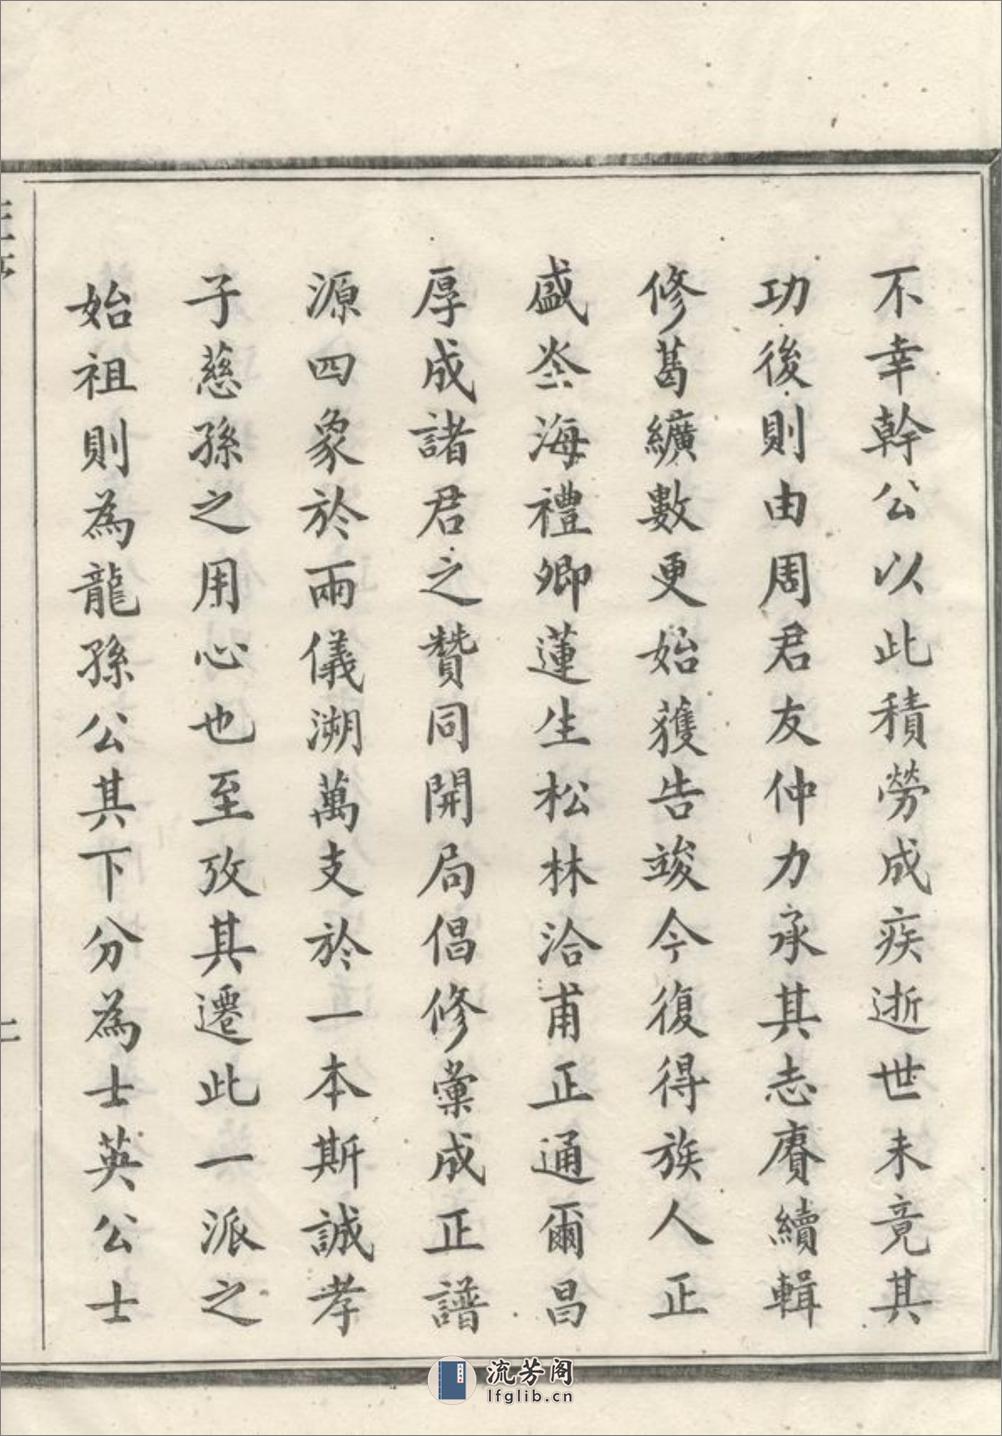 不幸幹公以此積勞成疾逝世未竟其
功後則由周君友仲力承其志賡續輯
修葛纊數更始獲告竣今復得族人正
盛岺海禮卿蓮生松林洽甫正通爾昌
厚成諸君之贊同開局倡修彙成正譜
源四象於兩儀溯萬支於一本斯誠孝
子慈孫之用心也至攷其遷此一派之
始祖則為龍孫公其下分為士英公士
流芳阁
lfglib.cn